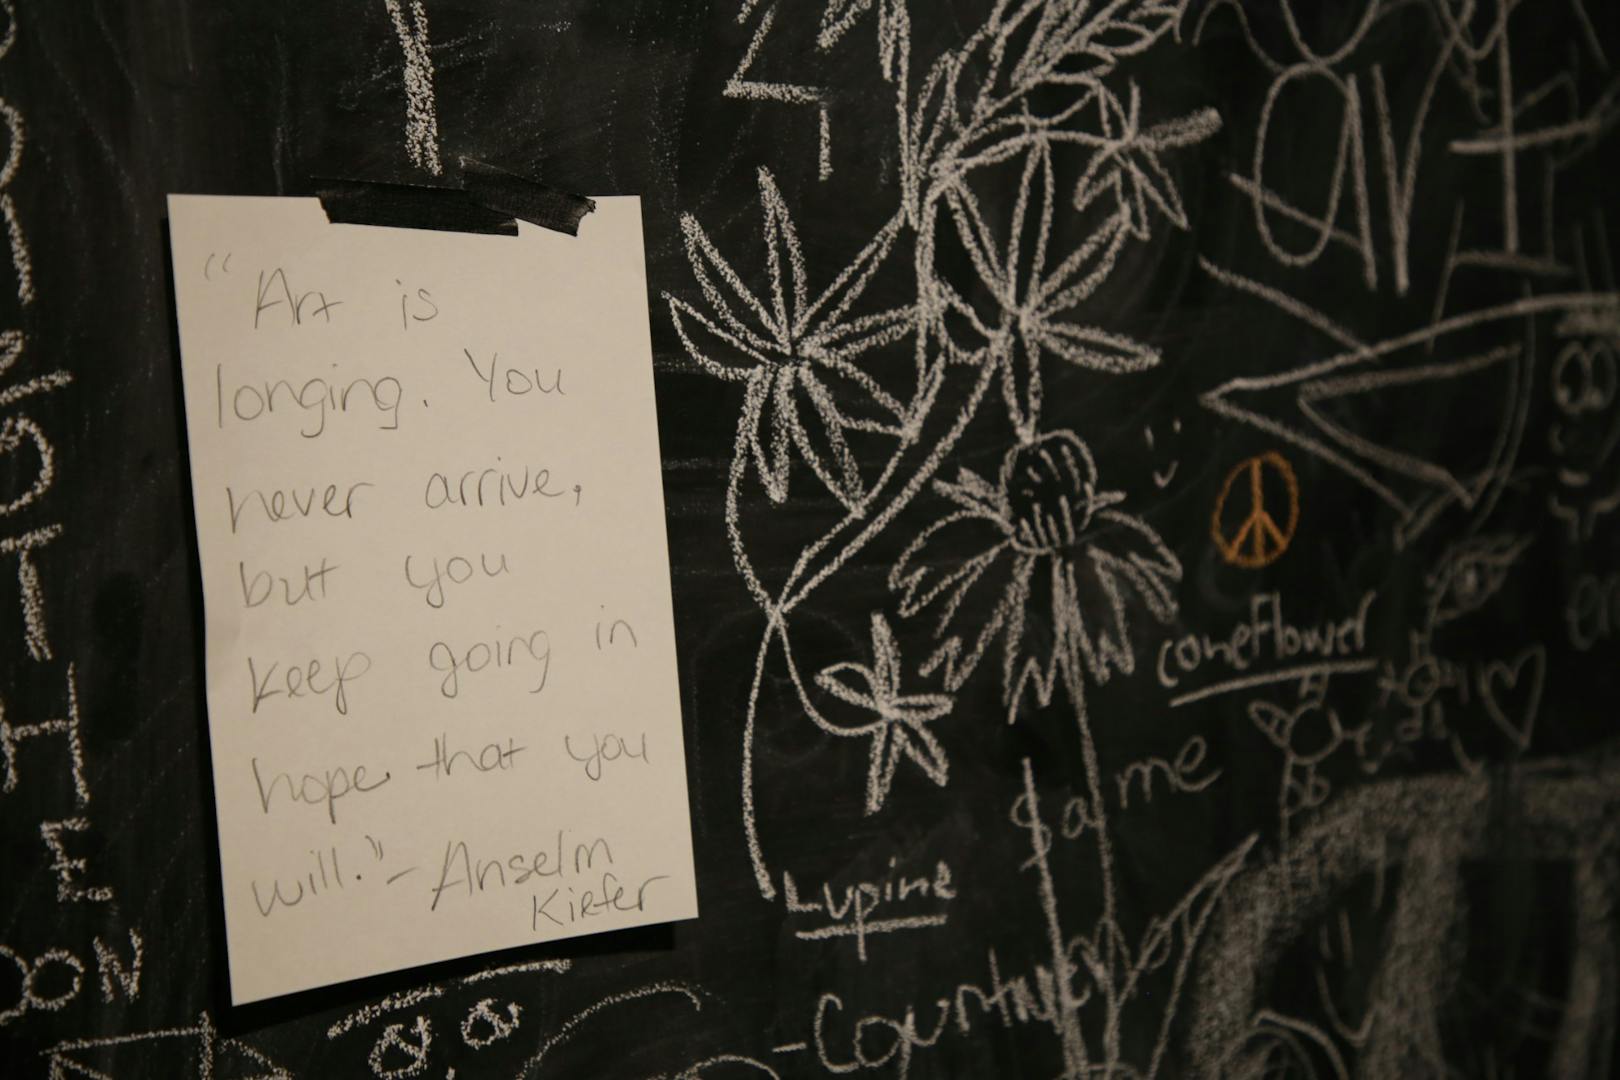 “Art is
longing. You
never arrive,
but you
keep going in
hope that you
will.”- Anselm
Kiefer
art
coneflower
same
Lupine